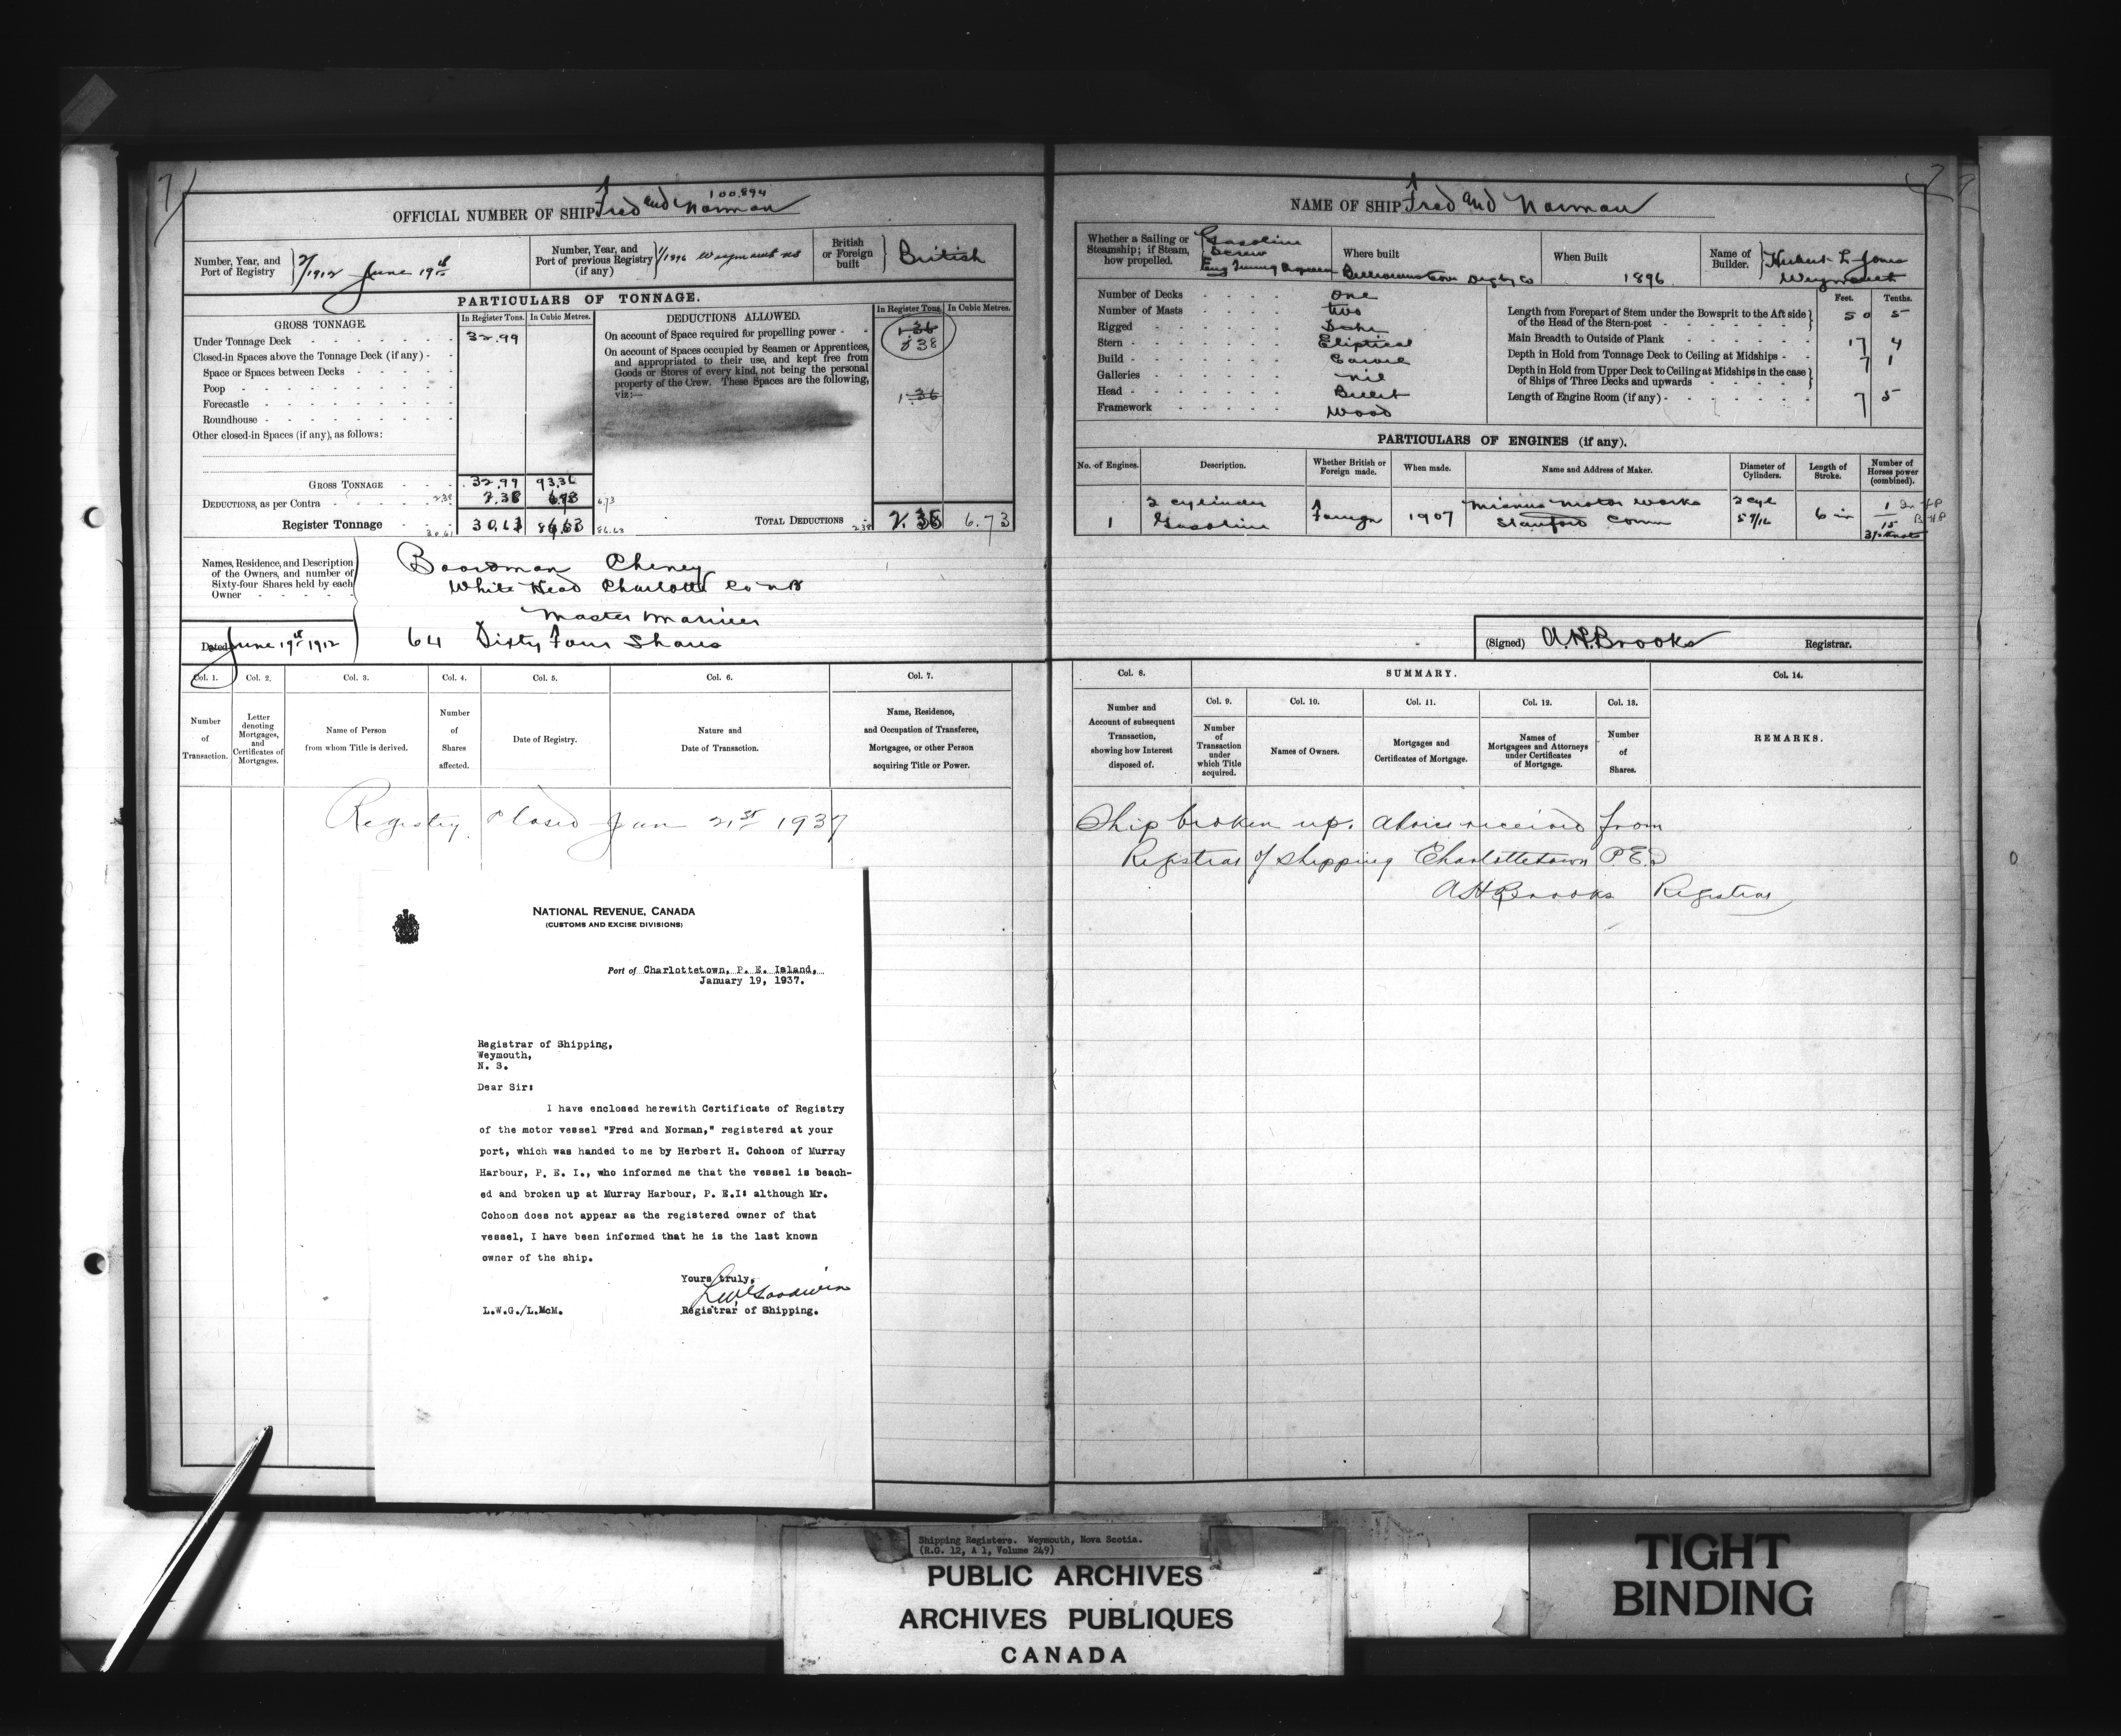 71
100.894
OFFICIAL NUMBER OF SHIP Fred and Norman
Number, Year, and Port of Registry 2/1912 June 19th
Number, Year, and Port of previous Registry (if any) 1/1896 Weymouth NS
British or Foreign built British
PARTICULARS OF TONNAGE.
GROSS TONNAGE.
In Register Tons. In Cubic Metres.
Under Tonnage Deck 32.99
Closed-in Spaces above the Tonnage Deck (if any)
Space or Spaces between Decks
Poop
Forecastle
Roundhouse
Other closed-in Spaces (if any), as follows:
GROSS TONNAGE 32.99 93.36
DEDUCTIONS, as per Contra 2.38 2.38 6.73 6.73
Register Tonnage 30.61 30.61 86.63 86.63
DEDUCTIONS ALLOWED.
In Register Tons. In Cubic Metres.
On account of Space required for propelling power 1.36
2.38
On account of Spaces occupied by Seamen or Apprentices,
and appropriated to their use, and kept free from
Goods or Stores of every kind, not being the personal
property of the Crew. These Spaces are the following,
viz:— 1.36
TOTAL DEDUCTIONS 2.38 2.38 6.73
Names, Residence, and Description
of the Owners, and number of
Sixty-four Shares held by each
Owner
Boardman Cheney
White Head Charlotte Co NB
Master Mariner
Dated June 19th 1912 64 Sixty Four Shares
Col. 1. Col. 2. Col. 3. Col. 4. Col. 5. Col. 6. Col. 7.
Number of Transaction.
Letter denoting Mortgages, and Certificates of Mortgages.
Name of Person from whom Title is derived.
Number of Shares affected.
Date of Registry.
Nature and Date of Transaction.
Name, Residence, and Occupation of Transferee, Mortgagee, or other Person acquiring Title or Power.
Registry Closed Jan 21st 1937
NATIONAL REVENUE, CANADA
(CUSTOMS AND EXCISE DIVISIONS)
Port of Charlottetown, P. E. Island,
January 19, 1937.
Registrar of Shipping,
Weymouth,
N. S.
Dear Sir:
I have enclosed herewith Certificate of Registry
of the motor vessel "Fred and Norman," registered at your
port, which was handed to me by Herbert H. Cohoon of Murray
Harbour, P. E. I., who informed me that the vessel is beach-
ed and broken up at Murray Harbour, P. E.I: although Mr.
Cohoon does not appear as the registered owner of that
vessel, I have been informed that he is the last known
owner of the ship.
Yours truly,
LWGoodwin
L.W.G./L.McM. Registrar of Shipping.
NAME OF SHIP Fred and Norman
Whether a Sailing or Steamship; if Steam, how propelled. Gasoline Screw
Where built Digby Co
When Built 1896
Name of Builder. Hubert L Jones Weymouth
Number of Decks One
Number of Masts two
Rigged Schr
Stern Eliptical
Build Carvel
Galleries nil
Head Billet
Framework Wood
Feet. Tenths.
Length from Forepart of Stem under the Bowsprit to the Aft side of the Head of the Stern-post 50 5
Main Breadth to Outside of Plank 17 4
Depth in Hold from Tonnage Deck to Ceiling at Midships 7 1
Depth in Hold from Upper Deck to Ceiling at Midships in the case of Ships of Three Decks and upwards
Length of Engine Room (if any) 7 5
PARTICULARS OF ENGINES (if any).
No. of Engines. Description. Whether British or Foreign made. When made. Name and Address of Maker. Diameter of Cylinders. Length of Stroke. Number of Horses power (combined).
1 2 cylinder Gasoline Foreign 1907 Mianus Motor Works Stamford Conn 2 cyl 5 7/16 6 in 1 15 BHP
(Signed) A.H.Brooks Registrar.
Col. 8. SUMMARY. Col. 14.
Col. 9. Col. 10. Col. 11. Col. 12. Col. 13.
Number and Account of subsequent Transaction, showing how Interest disposed of.
Number of Transaction under which Title acquired.
Names of Owners.
Mortgages and Certificates of Mortgage.
Names of Mortgagees and Attorneys under Certificates of Mortgage.
Number of Shares.
REMARKS.
Ship broken up. Advice received from
Registrar of Shipping Charlottetown PEI
AHBrooks Registrar
Shipping Registers. Weymouth, Nova Scotia.
(R.G. 12, A 1, Volume 249)
PUBLIC ARCHIVES
ARCHIVES PUBLIQUES
CANADA
TIGHT
BINDING